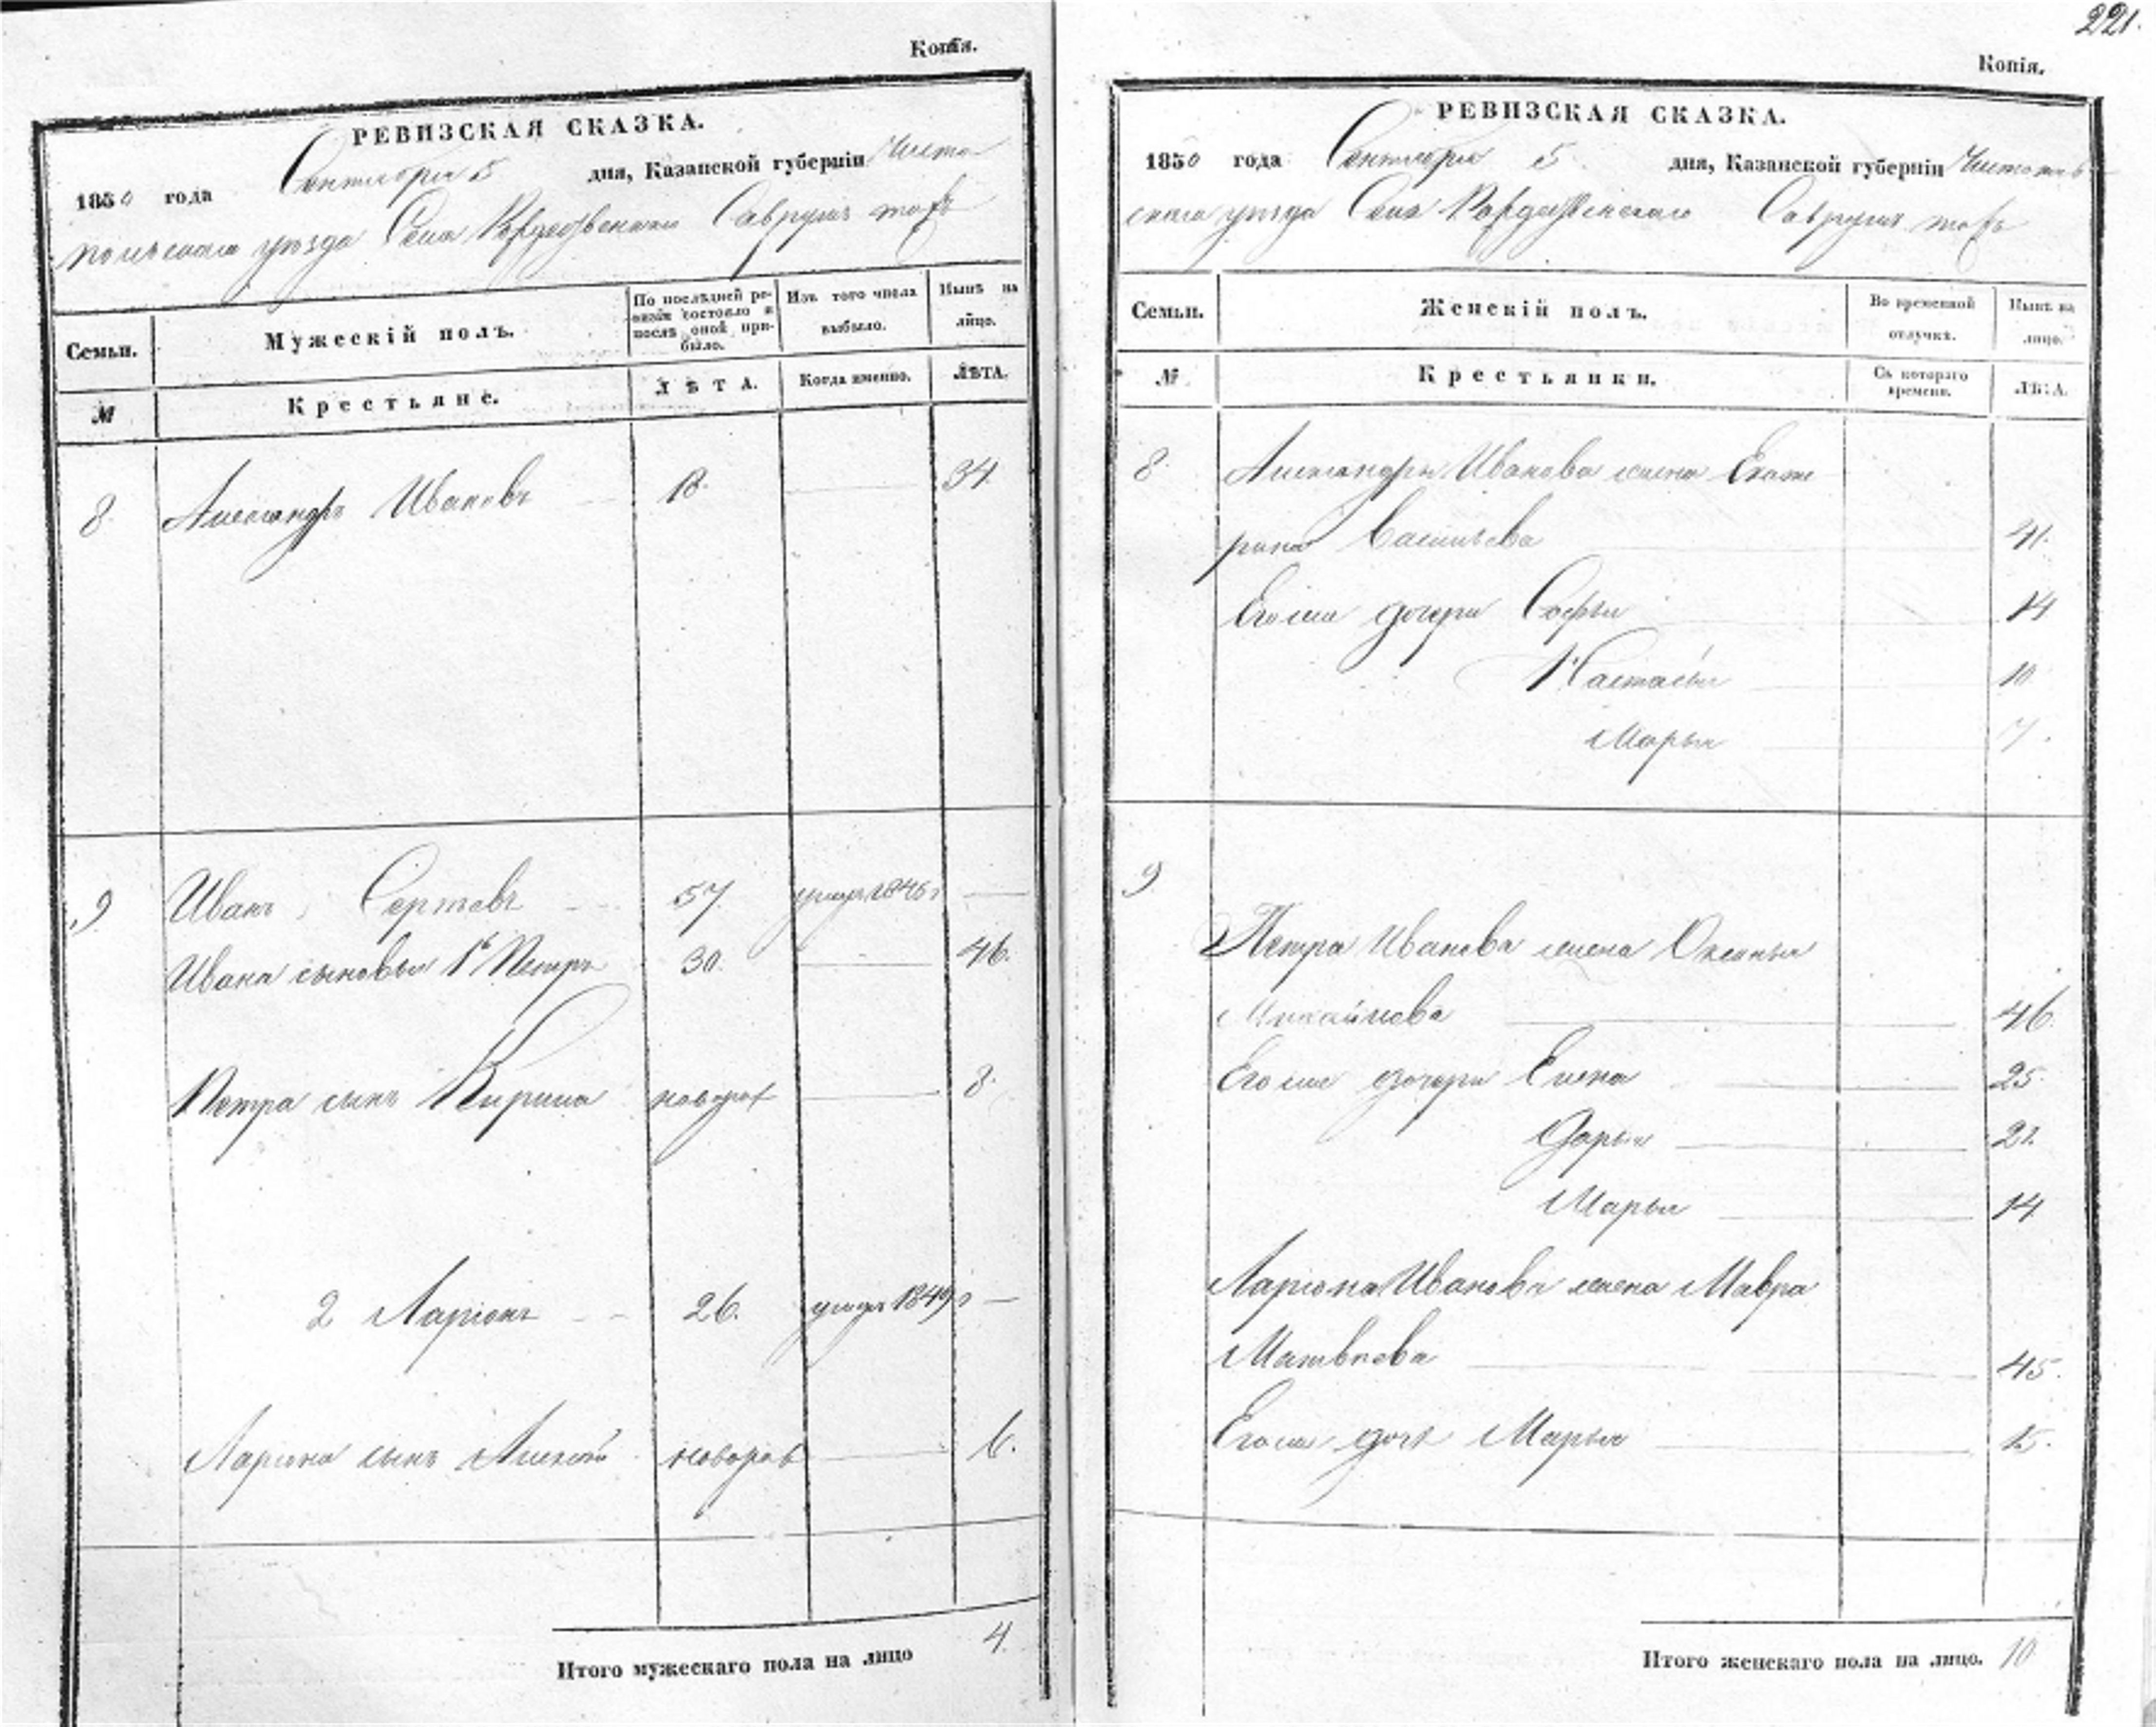 Копія.
РЕВИЗСКАЯ СКАЗКА.
1850 года Сентября 5 дня, Казанской губерніи Чисто
польскаго уѣзда Села Рождественскаго Саврушъ тожъ
Семьи.
Мужескій полъ.
По послѣдней ре-
визіи состояло и
послѣ оной при-
было.
Изъ того числа
выбыло.
Нынѣ на
лицо.
№
Крестьяне.
ЛѢТА.
Когда именно.
ЛѢТА.
8 Александръ Ивановъ 18. 34
9 Иванъ Сергѣевъ 57. умеръ 1846 г
Ивана сыновья 1й Петръ 30. 46.
Петра сынъ Кирила новорож 8.
2 Ларіонъ 26. умеръ 1849 г
Ларіона сынъ Алексѣй новорож 6.
Итого мужескаго пола на лицо 4.
221.
Копія.
РЕВИЗСКАЯ СКАЗКА.
1850 года Сентября 5 дня, Казанской губерніи Чистополь
скаго уѣзда Села Рождественскаго Саврушъ тожъ
Семьи.
Женскій полъ.
Во временной
отлучкѣ.
Нынѣ на
лицо.
№
Крестьянки.
Съ котораго
времени.
ЛѢТА.
8. Александра Иванова жена Екате
рина Васильева 41.
Его же дочери Софья 14
Настасья 10
Марья 7.
9
Петра Иванова жена Оксинья
Михайлова 46.
Его же дочери Елена 25.
Дарья 21.
Марья 14
Ларіона Иванова жена Мавра
Матвѣева 45.
Его же дочь Марья 15.
Итого женскаго пола на лицо. 10